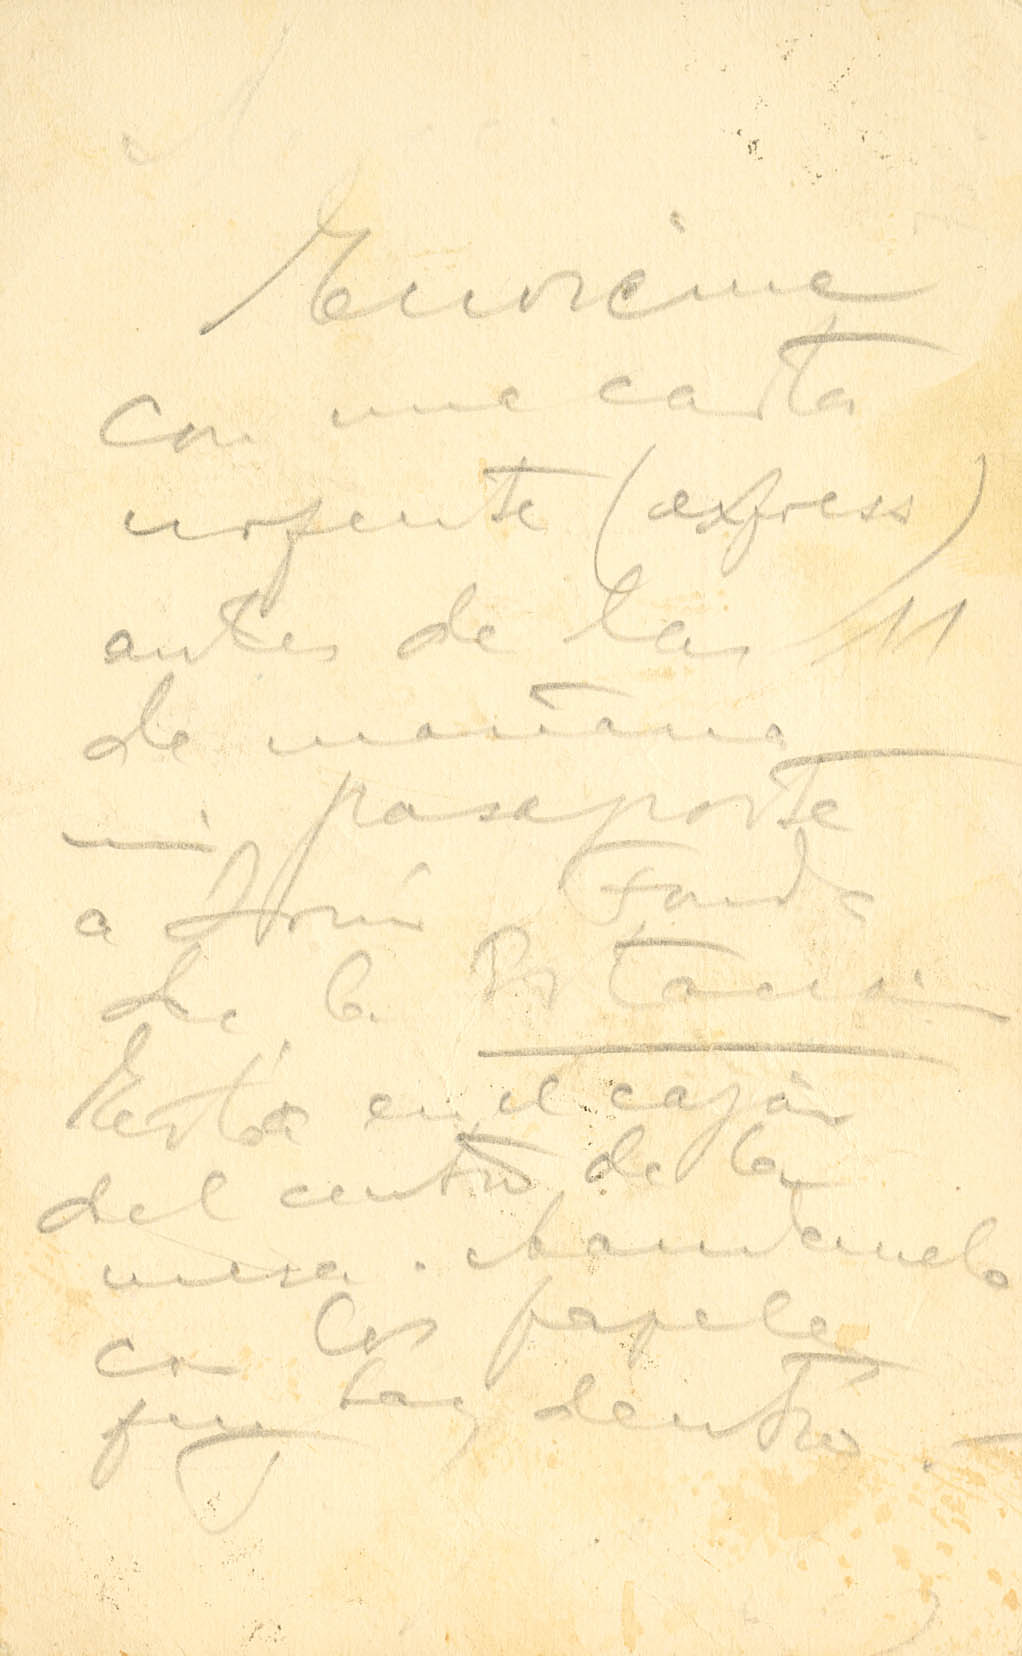 Envieme
con una carta
urgente (express)
antes de las 11
de mañana
mi pasaporte
a Irún Fonda
de la Estación
Está en el cajón
del centro de la
mesa. Mandemelo
con los papeles
que hay dentro.